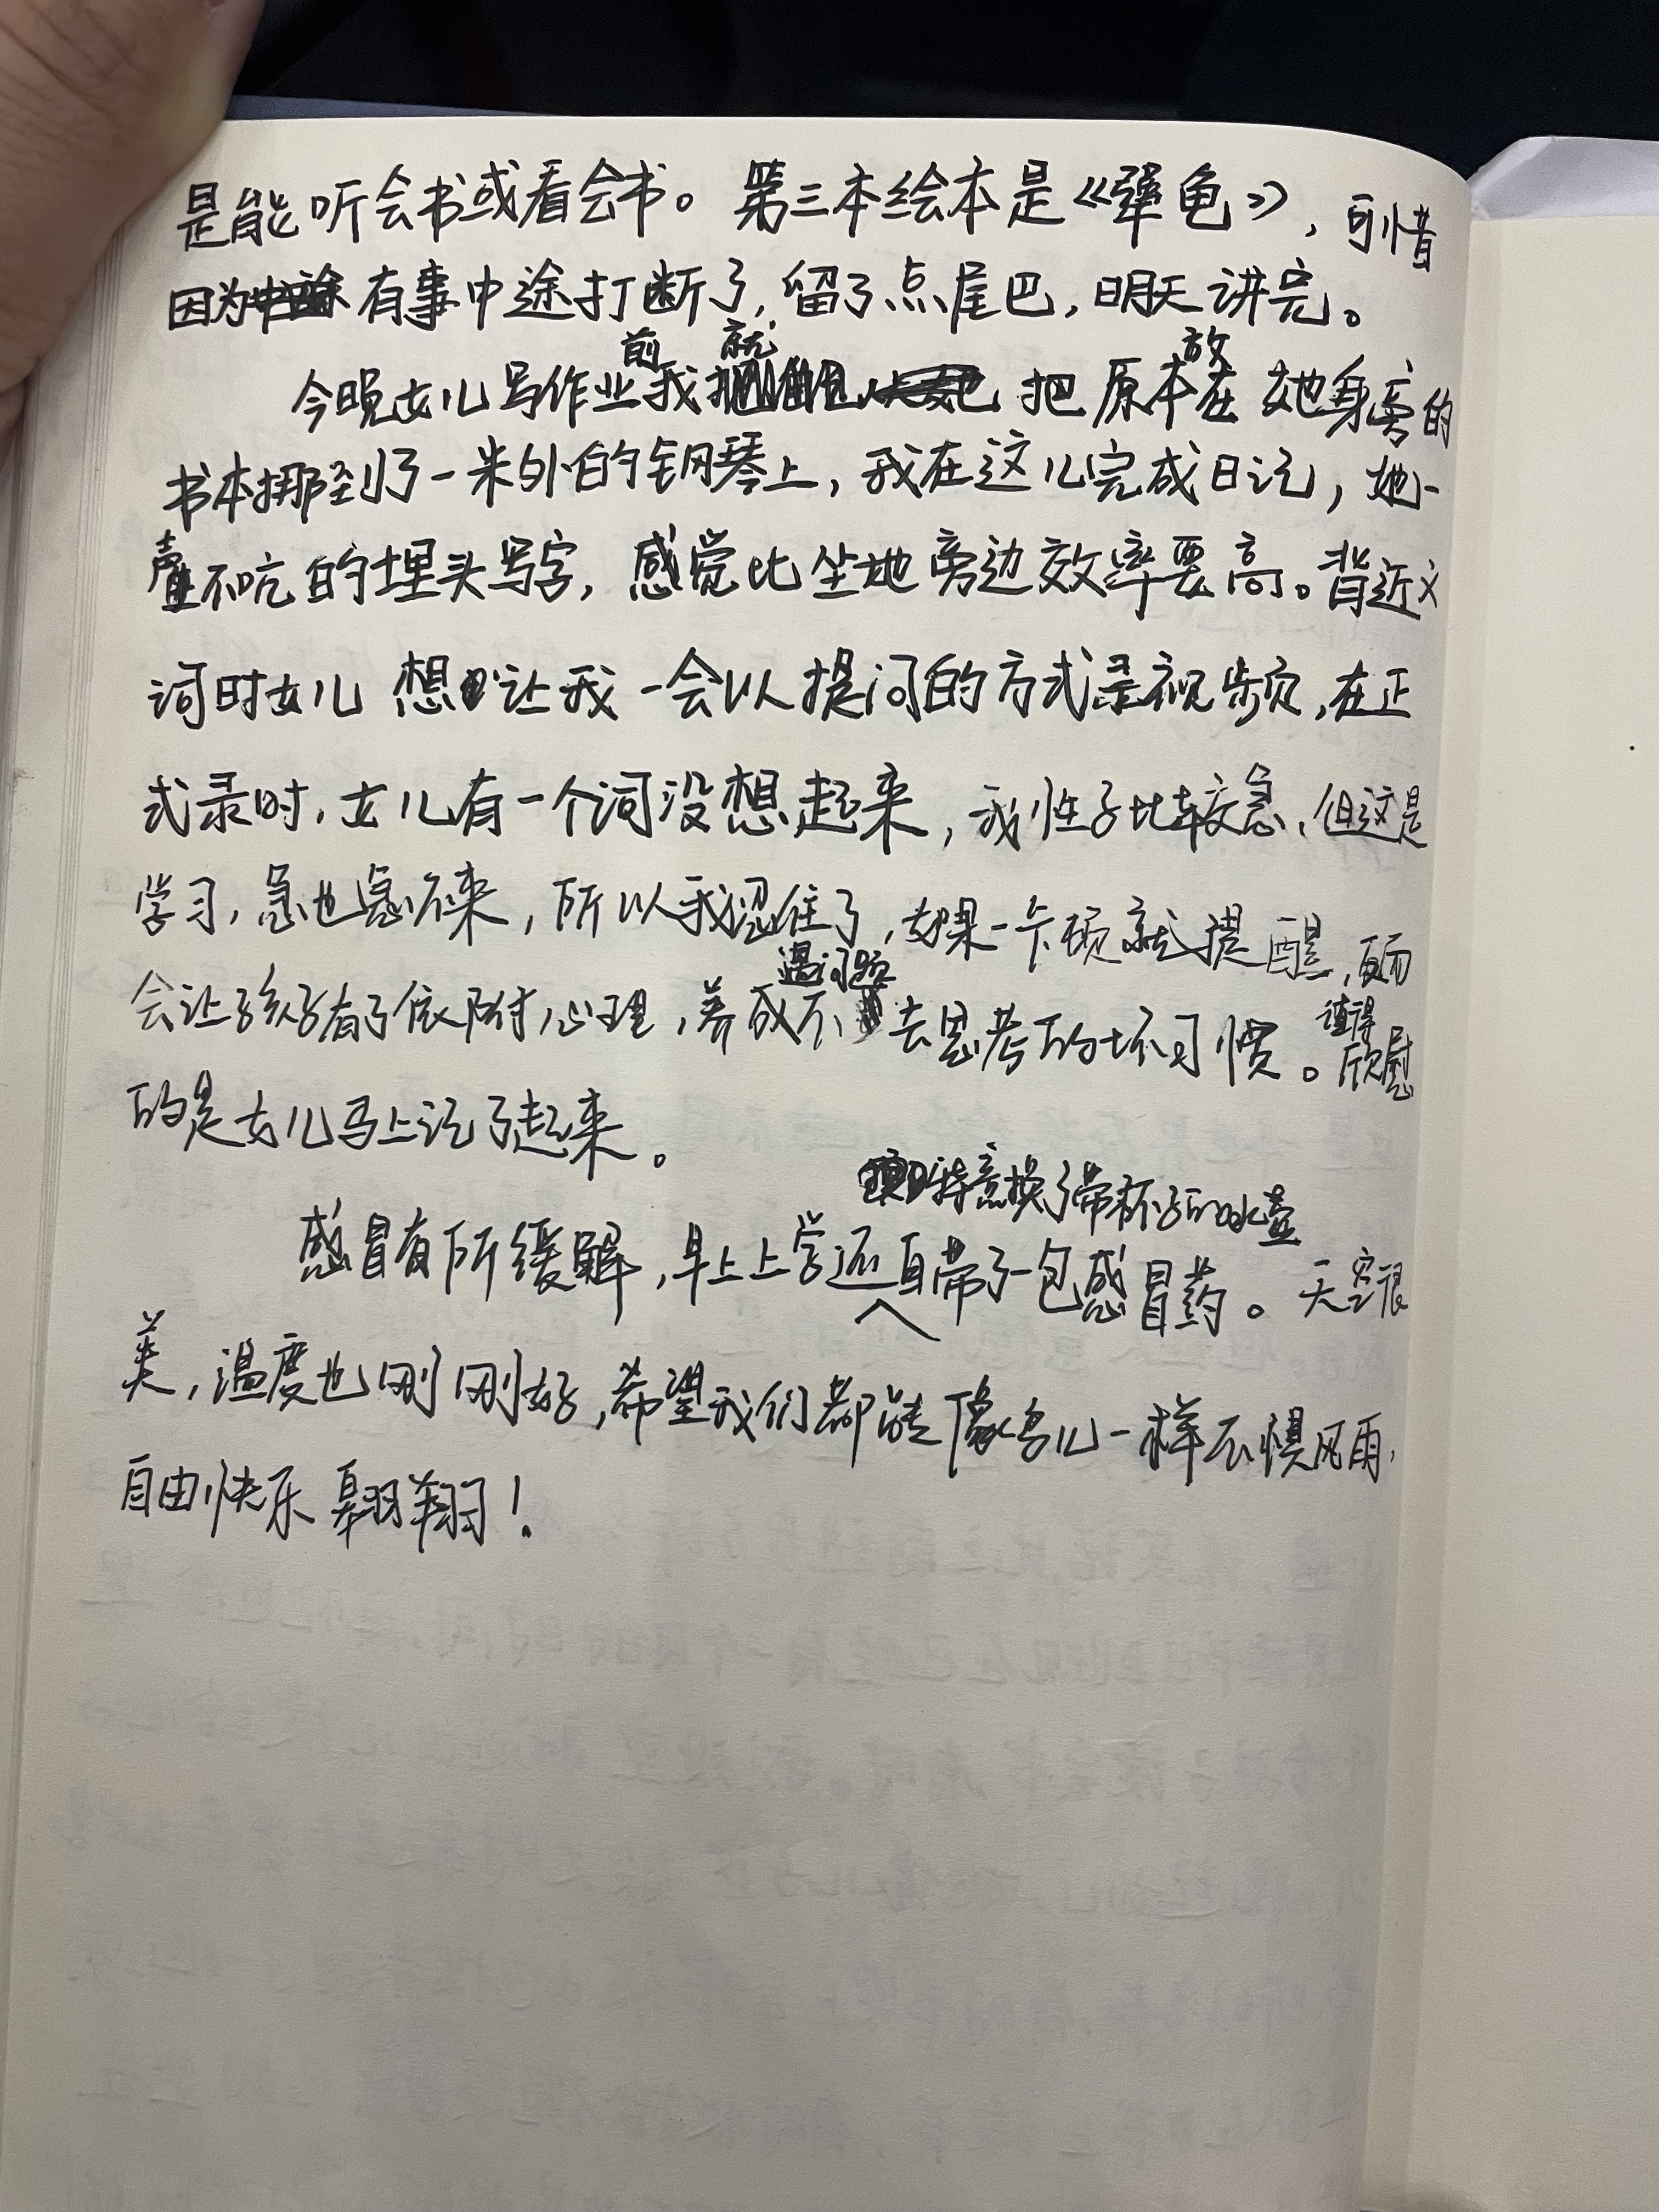 是能听会书或看会书。第三本绘本是《犟龟》，可惜
因为有事中途打断了，留了点尾巴，明天讲完。
今晚女儿写作业前我就把原本放在她身旁的
书本挪到了一米外的钢琴上，我在这儿完成日记，她一
声不吭的埋头写字，感觉比坐她旁边效率要高。背近义
词时女儿想让我一会以提问的方式录视频，在正
式录时，女儿有一个词没想起来，我性子比较急，但这是
学习，急也急不来，所以我忍住了，如果一卡顿就提醒，反而
会让孩子有了依附心理，养成不遇问题去思考的坏习惯。值得欣慰
的是女儿马上记了起来。
感冒有所缓解，早上上学还特意换了带杯子的水壶自带了一包感冒药。天空很
美，温度也刚刚好，希望我们都能像鸟儿一样不惧风雨，
自由快乐翱翔！